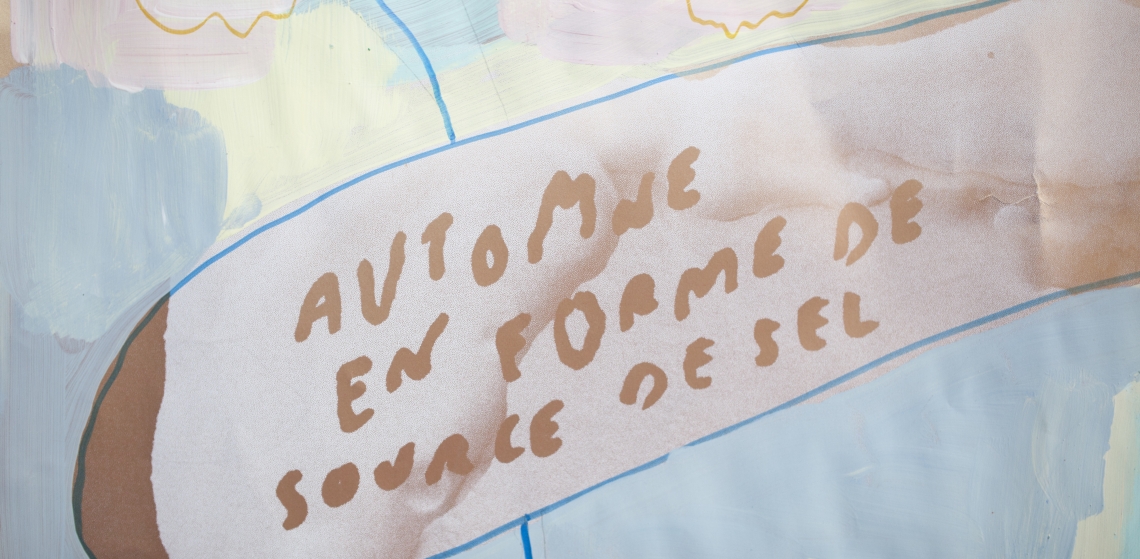 AUTOMNE
EN FORME DE
SOURCE DE SEL